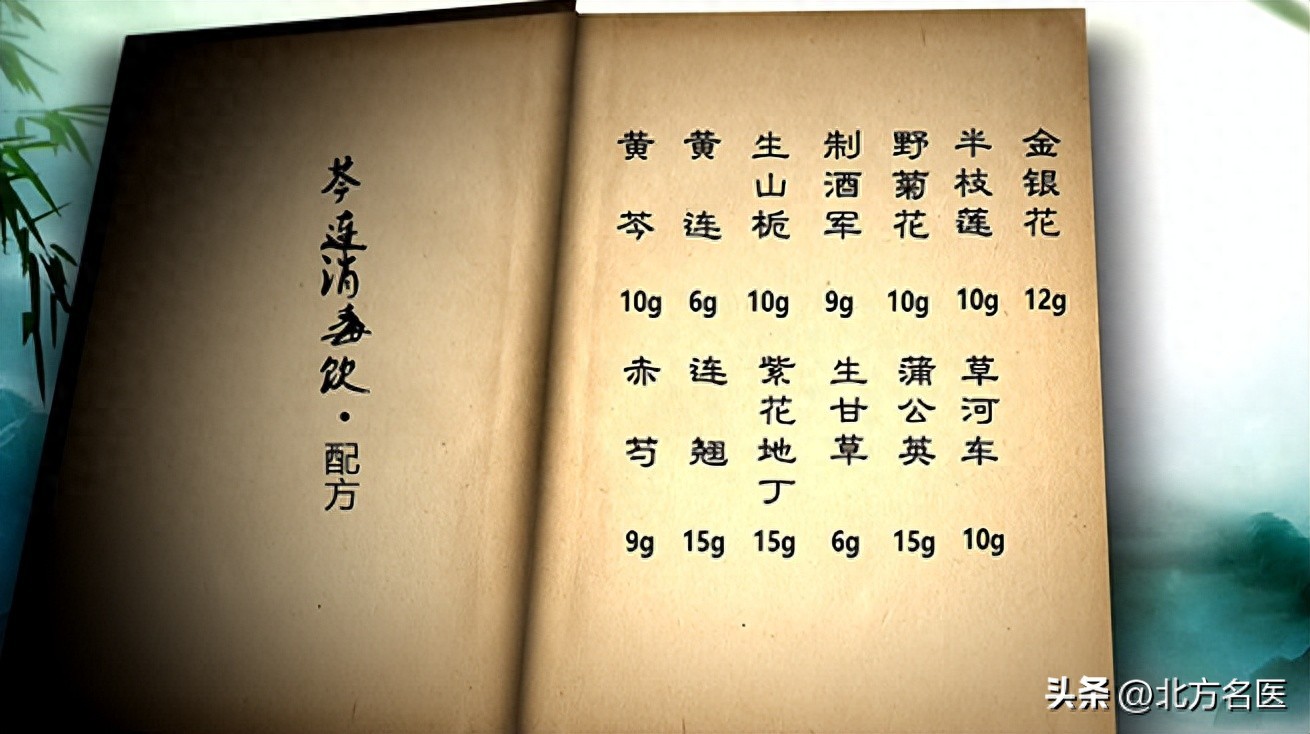 芩连消毒饮·配方
黄芩 黄连 生山栀 制酒军 野菊花 半枝莲 金银花
10g 6g 10g 9g 10g 10g 12g
赤芍 连翘 紫花地丁 生甘草 蒲公英 草河车
9g 15g 15g 6g 15g 10g
头条 @北方名医